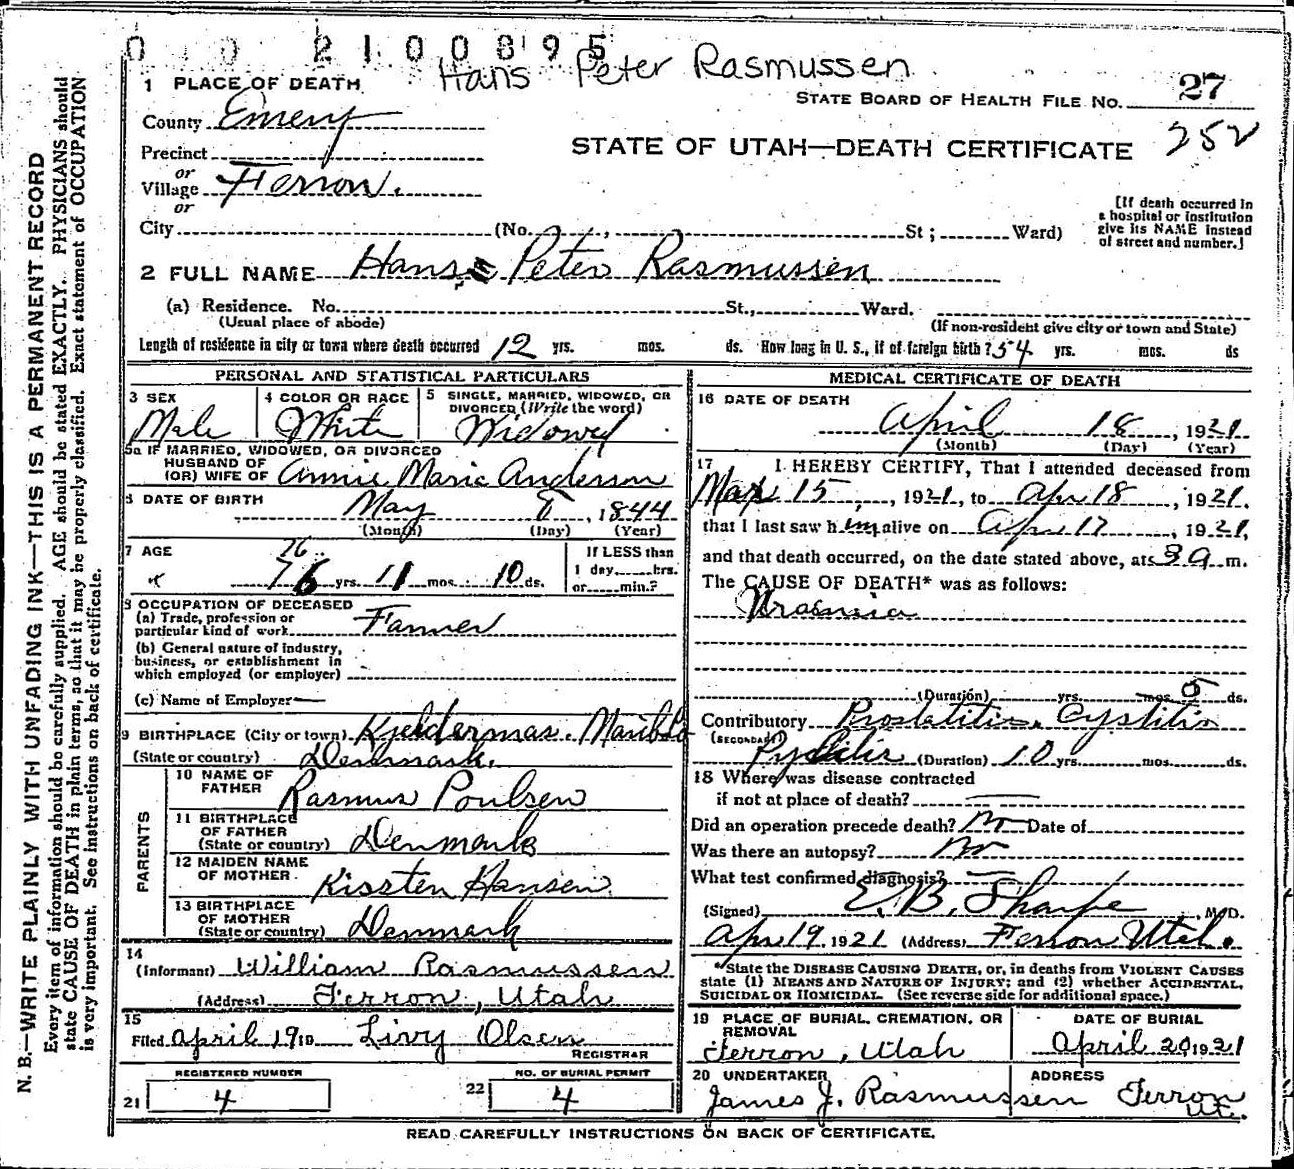 0 0 2100895
Hans Peter Rasmussen
1 PLACE OF DEATH
STATE BOARD OF HEALTH FILE NO. 27
County Emery
252
STATE OF UTAH—DEATH CERTIFICATE
Precinct
or
Village Ferron.
or
[If death occurred in a hospital or institution give its NAME instead of street and number.]
City (No. , St ; Ward)
2 FULL NAME Hans Peter Rasmussen
(a) Residence. No. St., Ward.
(Usual place of abode) (If non-resident give city or town and State)
Length of residence in city or town where death occurred 12 yrs. mos. ds. How long in U. S., if of foreign birth? 54 yrs. mos. ds
PERSONAL AND STATISTICAL PARTICULARS
3 SEX Male
4 COLOR OR RACE White
5 SINGLE, MARRIED, WIDOWED, OR DIVORCED (Write the word) Widowed
5a IF MARRIED, WIDOWED, OR DIVORCED
HUSBAND OF
(OR) WIFE OF Annie Marie Anderson
6 DATE OF BIRTH May 8, 1844
(Month) (Day) (Year)
7 AGE 76
76 yrs. 11 mos. 10 ds.
If LESS than
1 day, hrs.
or min.?
8 OCCUPATION OF DECEASED
(a) Trade, profession or
particular kind of work Farmer
(b) General nature of industry,
business, or establishment in
which employed (or employer)
(c) Name of Employer—
9 BIRTHPLACE (City or town) Kjeldermas. Maribo
(State or country) Denmark.
PARENTS
10 NAME OF
FATHER Rasmus Poulsen
11 BIRTHPLACE
OF FATHER
(State or country) Denmark
12 MAIDEN NAME
OF MOTHER Kissten Hansen
13 BIRTHPLACE
OF MOTHER
(State or country) Denmark
14
(Informant) William Rasmussen
(Address) Ferron, Utah
15
Filed April 19 19 Livy Olsen
REGISTRAR
REGISTERED NUMBER
21 4
NO. OF BURIAL PERMIT
22 4
MEDICAL CERTIFICATE OF DEATH
16 DATE OF DEATH
April 18, 1921
(Month) (Day) (Year)
17 I HEREBY CERTIFY, That I attended deceased from
Mar 15, 1921, to Apr 18, 1921,
that I last saw him alive on Apr 17, 1921,
and that death occurred, on the date stated above, at 3 a m.
The CAUSE OF DEATH* was as follows:
Uraemia
(Duration) yrs. mos. 5 ds.
Contributory Prostatitis, Cystitis
(SECONDARY)
Pyelitis (Duration) 10 yrs. mos. ds.
18 Where was disease contracted
if not at place of death?
Did an operation precede death? No Date of
Was there an autopsy? No
What test confirmed diagnosis?
(Signed) E. B. Sharpe, M.D.
Apr 19, 1921 (Address) Ferron Utah.
*State the DISEASE CAUSING DEATH, or, in deaths from VIOLENT CAUSES
state (1) MEANS AND NATURE OF INJURY; and (2) whether ACCIDENTAL,
SUICIDAL OR HOMICIDAL. (See reverse side for additional space.)
19 PLACE OF BURIAL, CREMATION, OR
REMOVAL
Ferron, Utah
DATE OF BURIAL
April 20 1921
20 UNDERTAKER
James J. Rasmussen
ADDRESS
Ferron
Ut.
READ CAREFULLY INSTRUCTIONS ON BACK OF CERTIFICATE.
N. B.—WRITE PLAINLY WITH UNFADING INK—THIS IS A PERMANENT RECORD
Every item of information should be carefully supplied. AGE should be stated EXACTLY. PHYSICIANS should
state CAUSE OF DEATH in plain terms, so that it may be properly classified. Exact statement of OCCUPATION
is very important. See instructions on back of certificate.